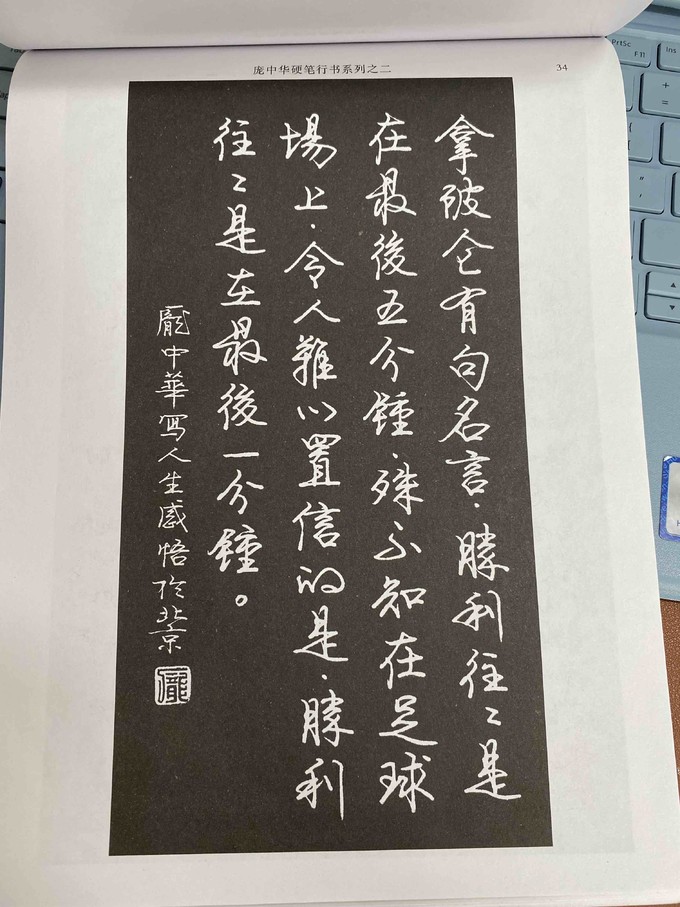 庞中华硬笔行书系列之二
34
拿破仑有句名言.勝利往々是
在最後五分鍾.殊不知在足球
場上.令人難以置信的是.勝利
往々是在最後一分鍾。
龐中華寫人生感悟於北京
龐
PrtSc
F11
Ins